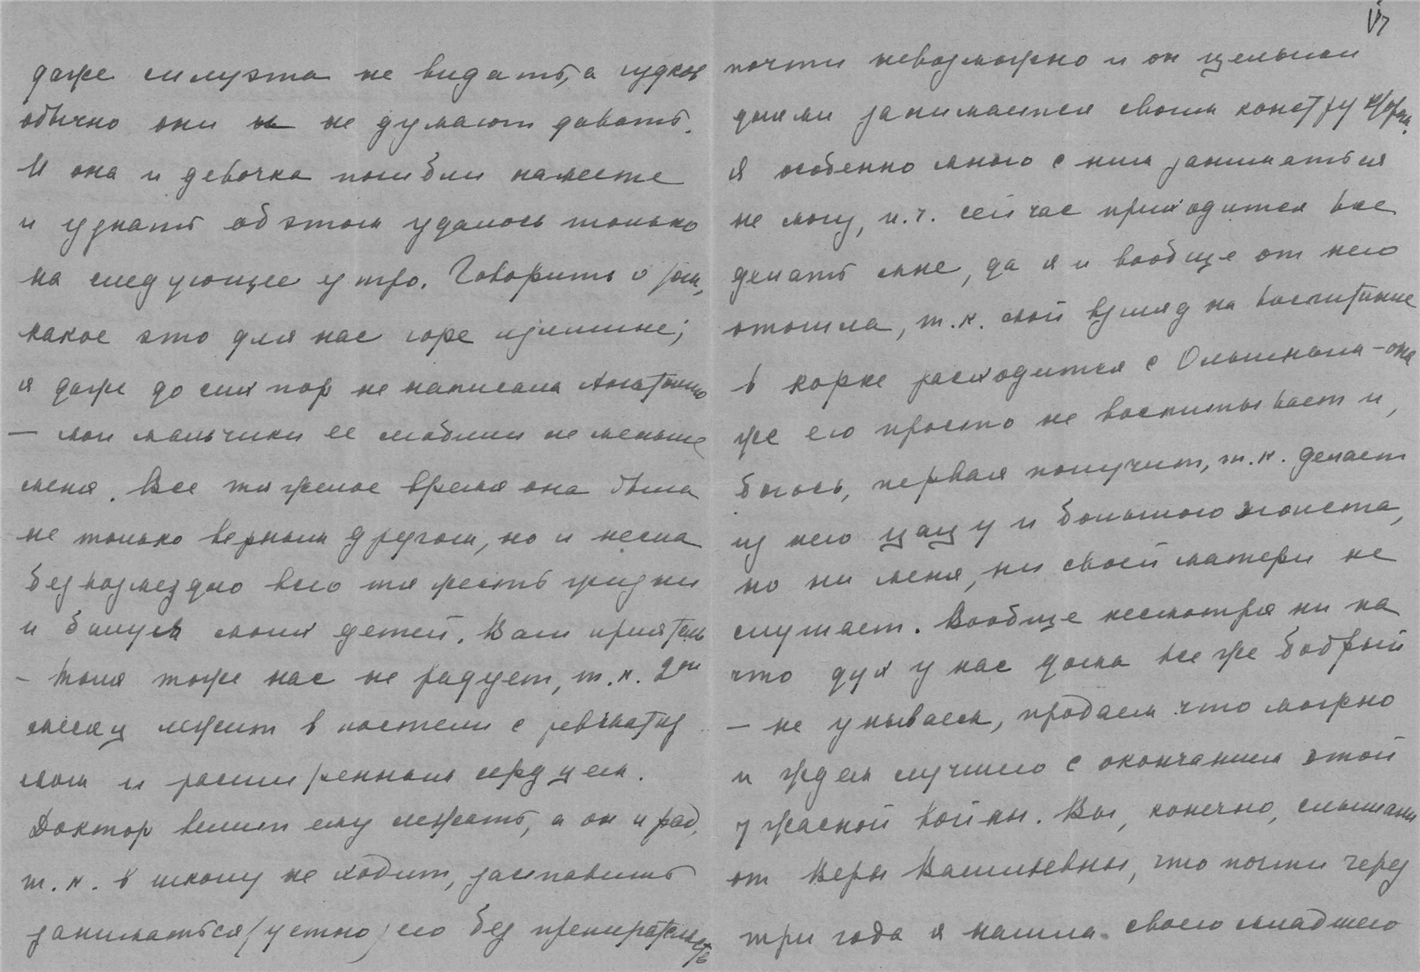 даже силуэта не видать, а гудков
обычно они и не думают давать.
И она и девочка погибли на месте
и узнать об этом удалось только
на следующее утро. Говорить о том,
какое это для нас горе излишне;
я даже до сих пор не написала Анатолию
— мои мальчики ее любили не меньше
меня. Все тяжелое время она была
не только верным другом, но и несла
безвозмездно всю тяжесть жизни
и болезни моих детей. Ваш приятель
– Толя тоже нас не радует, т.к. 2ой
месяц лежит в постели с ревматиз
мом и расширенным сердцем.
Доктор велит ему лежать, а он и рад,
т.к. в школу не ходит, заставить
заниматься (устно) его без препирательств
почти невозможно и он целыми
днями занимается своим
Я особенно много с ним заниматься
не могу, п.ч. сейчас приходится все
делать мне, да я и вообще от него
отошла, т.к. мой взгляд на воспитание
в корне расходится с Ольгиным – она
же его просто не воспитывает и,
боюсь, первая получит, т.к. делает
из него цацу и большого эгоиста,
но ни меня, ни своей матери не
слушает. Вообще несмотря ни на
что дух у нас дома все же бодрый
– не унываем, продаем что можно
и ждем лучшего с окончанием этой
ужасной войны. Вы, конечно, слышали
от Веры Васильевны, что почти через
три года я нашла своего младшего